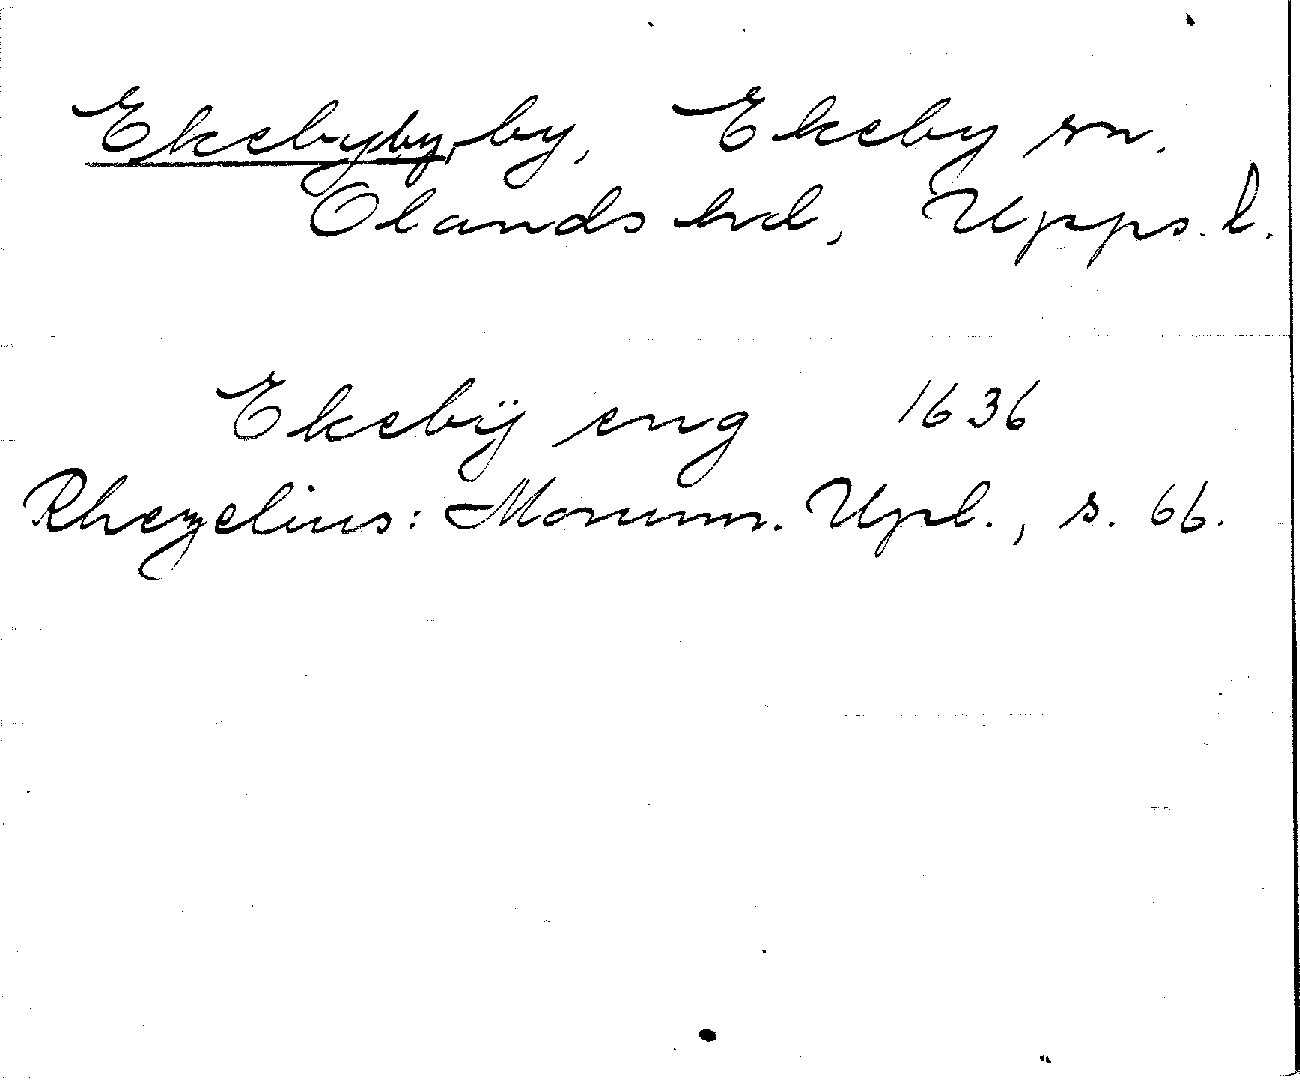 Ekebyby, by, Ekeby sn.
Olands hd, Upps. l.
Ekebÿ eng 1636
Rhezelius: Monum. Upl., s. 66.